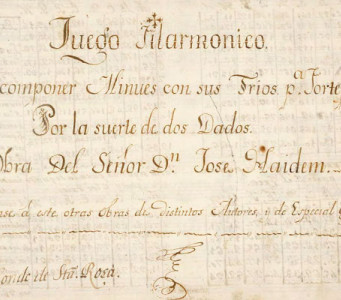 Juego Filarmonico.
componer Minues con sus Trios p.ª Forte
Por la suerte de dos Dados.
Obra Del Señor D.n Jose Haidem.
à este otras obras de distintos Autores, i de Especial
Conde de Sta. Rosa.